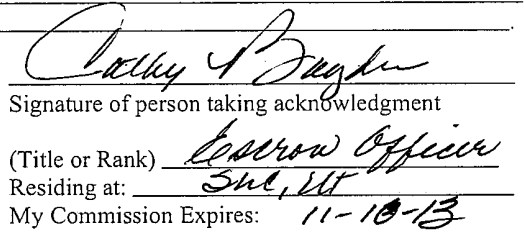 Cathy
Signature of person taking acknowledgment
(Title or Rank) Escrow Officer
Residing at: SLC, Ut
My Commission Expires: 11-10-13